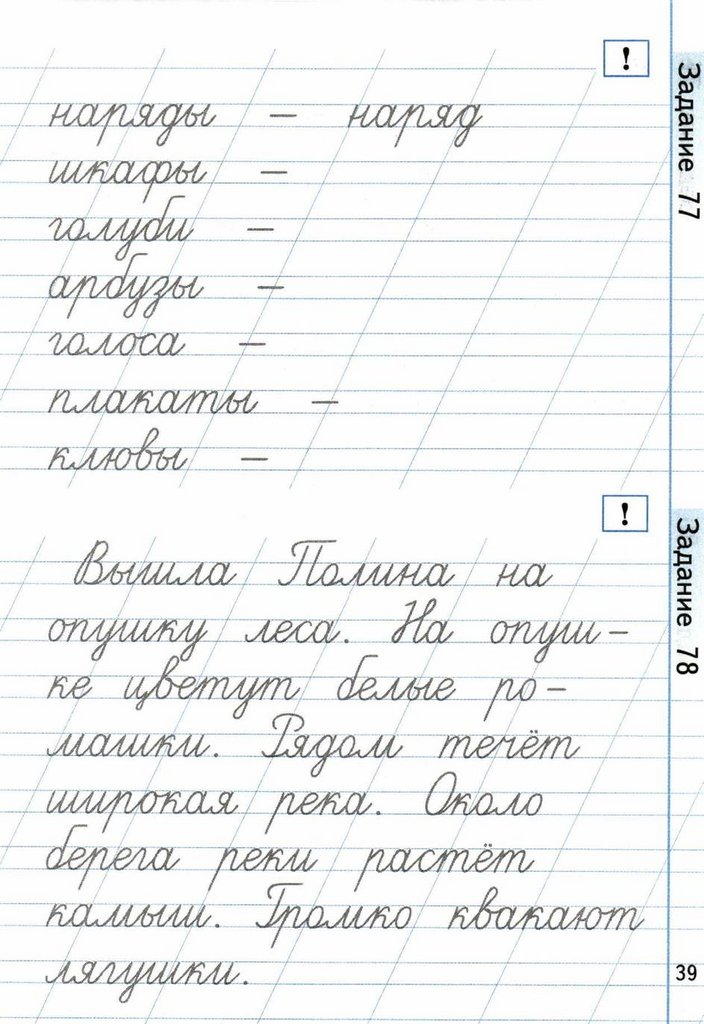 !
Задание 77
наряды – наряд
шкафы –
голуби –
арбузы –
голоса –
плакаты –
клювы –
!
Задание 78
Вышла Полина на
опушку леса. На опуш–
ке цветут белые ро–
машки. Рядом течёт
широкая река. Около
берега реки растёт
камыш. Громко квакают
лягушки.
39